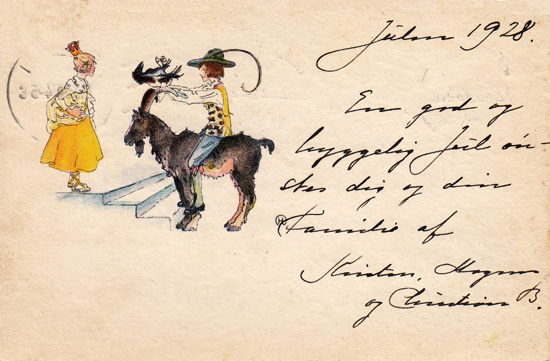 Julen 1928.
En god og
hyggelig Jul øn-
skes dig og din
Familie af
Kirsten, Mogens
og Christian B.